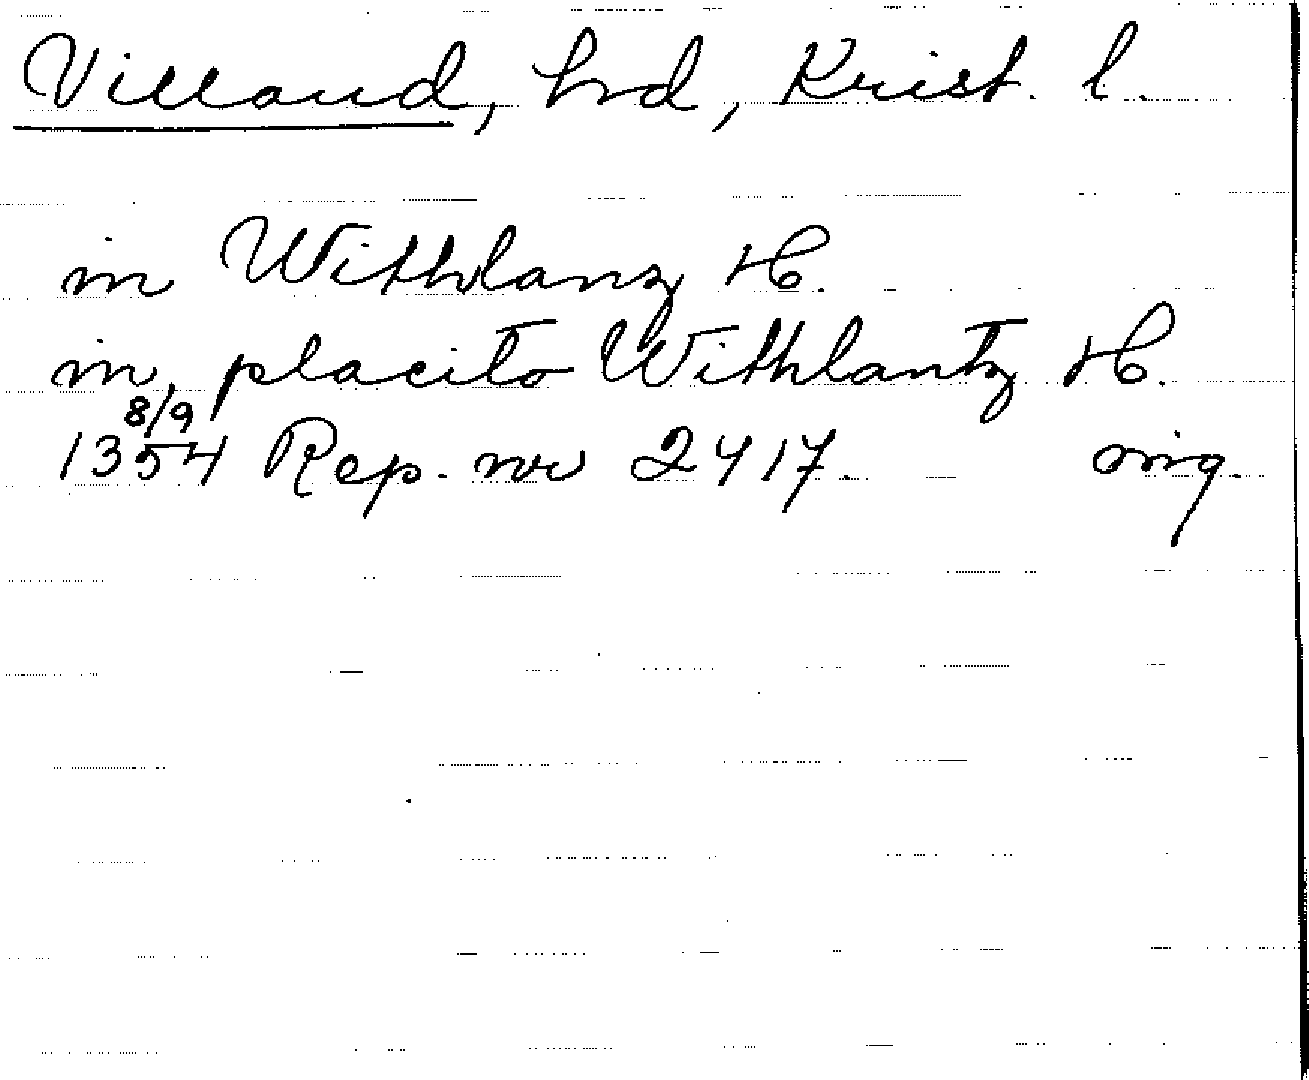 Villand, hrd, Krist. l.
in Withlanz H.
in placito Withlantz H.
8/9
1354 Rep. nr 2417. orig.